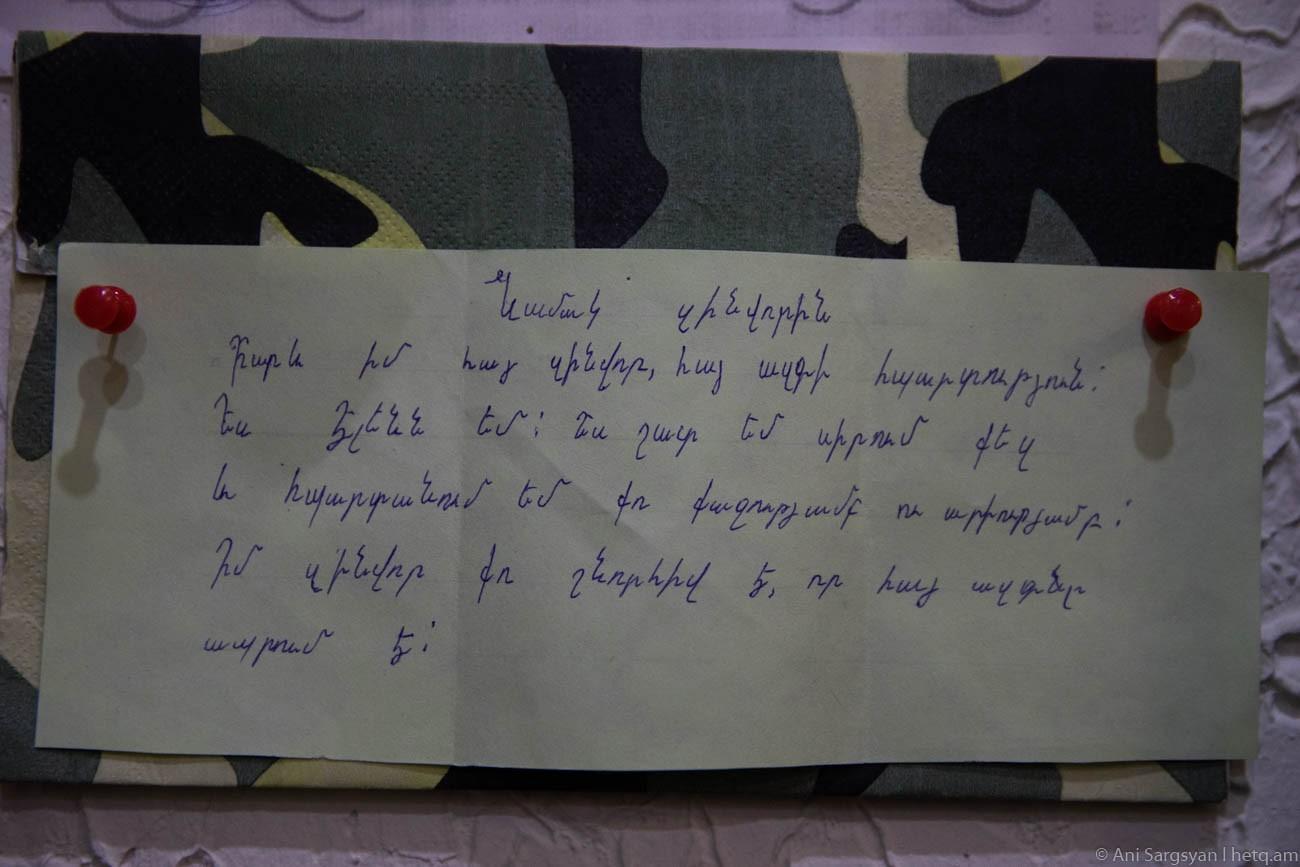 Նամակ զինվորին
Բարև իմ հայ զինվոր, հայ ազգի հպարտություն։
Ես Էլենն եմ։ Ես շատ եմ սիրում քեզ
և հպարտանում եմ քո քաջությամբ ու արիությամբ։
Իմ զինվոր քո շնորհիվ է, որ հայ ազգնել
ապրում է։
© Ani Sargsyan | hetq.am